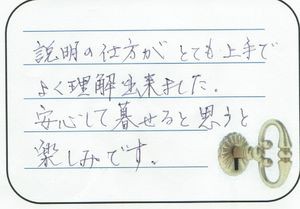 説明の仕方が とても上手で
よく理解出来ました。
安心して暮せると思うと
楽しみです。